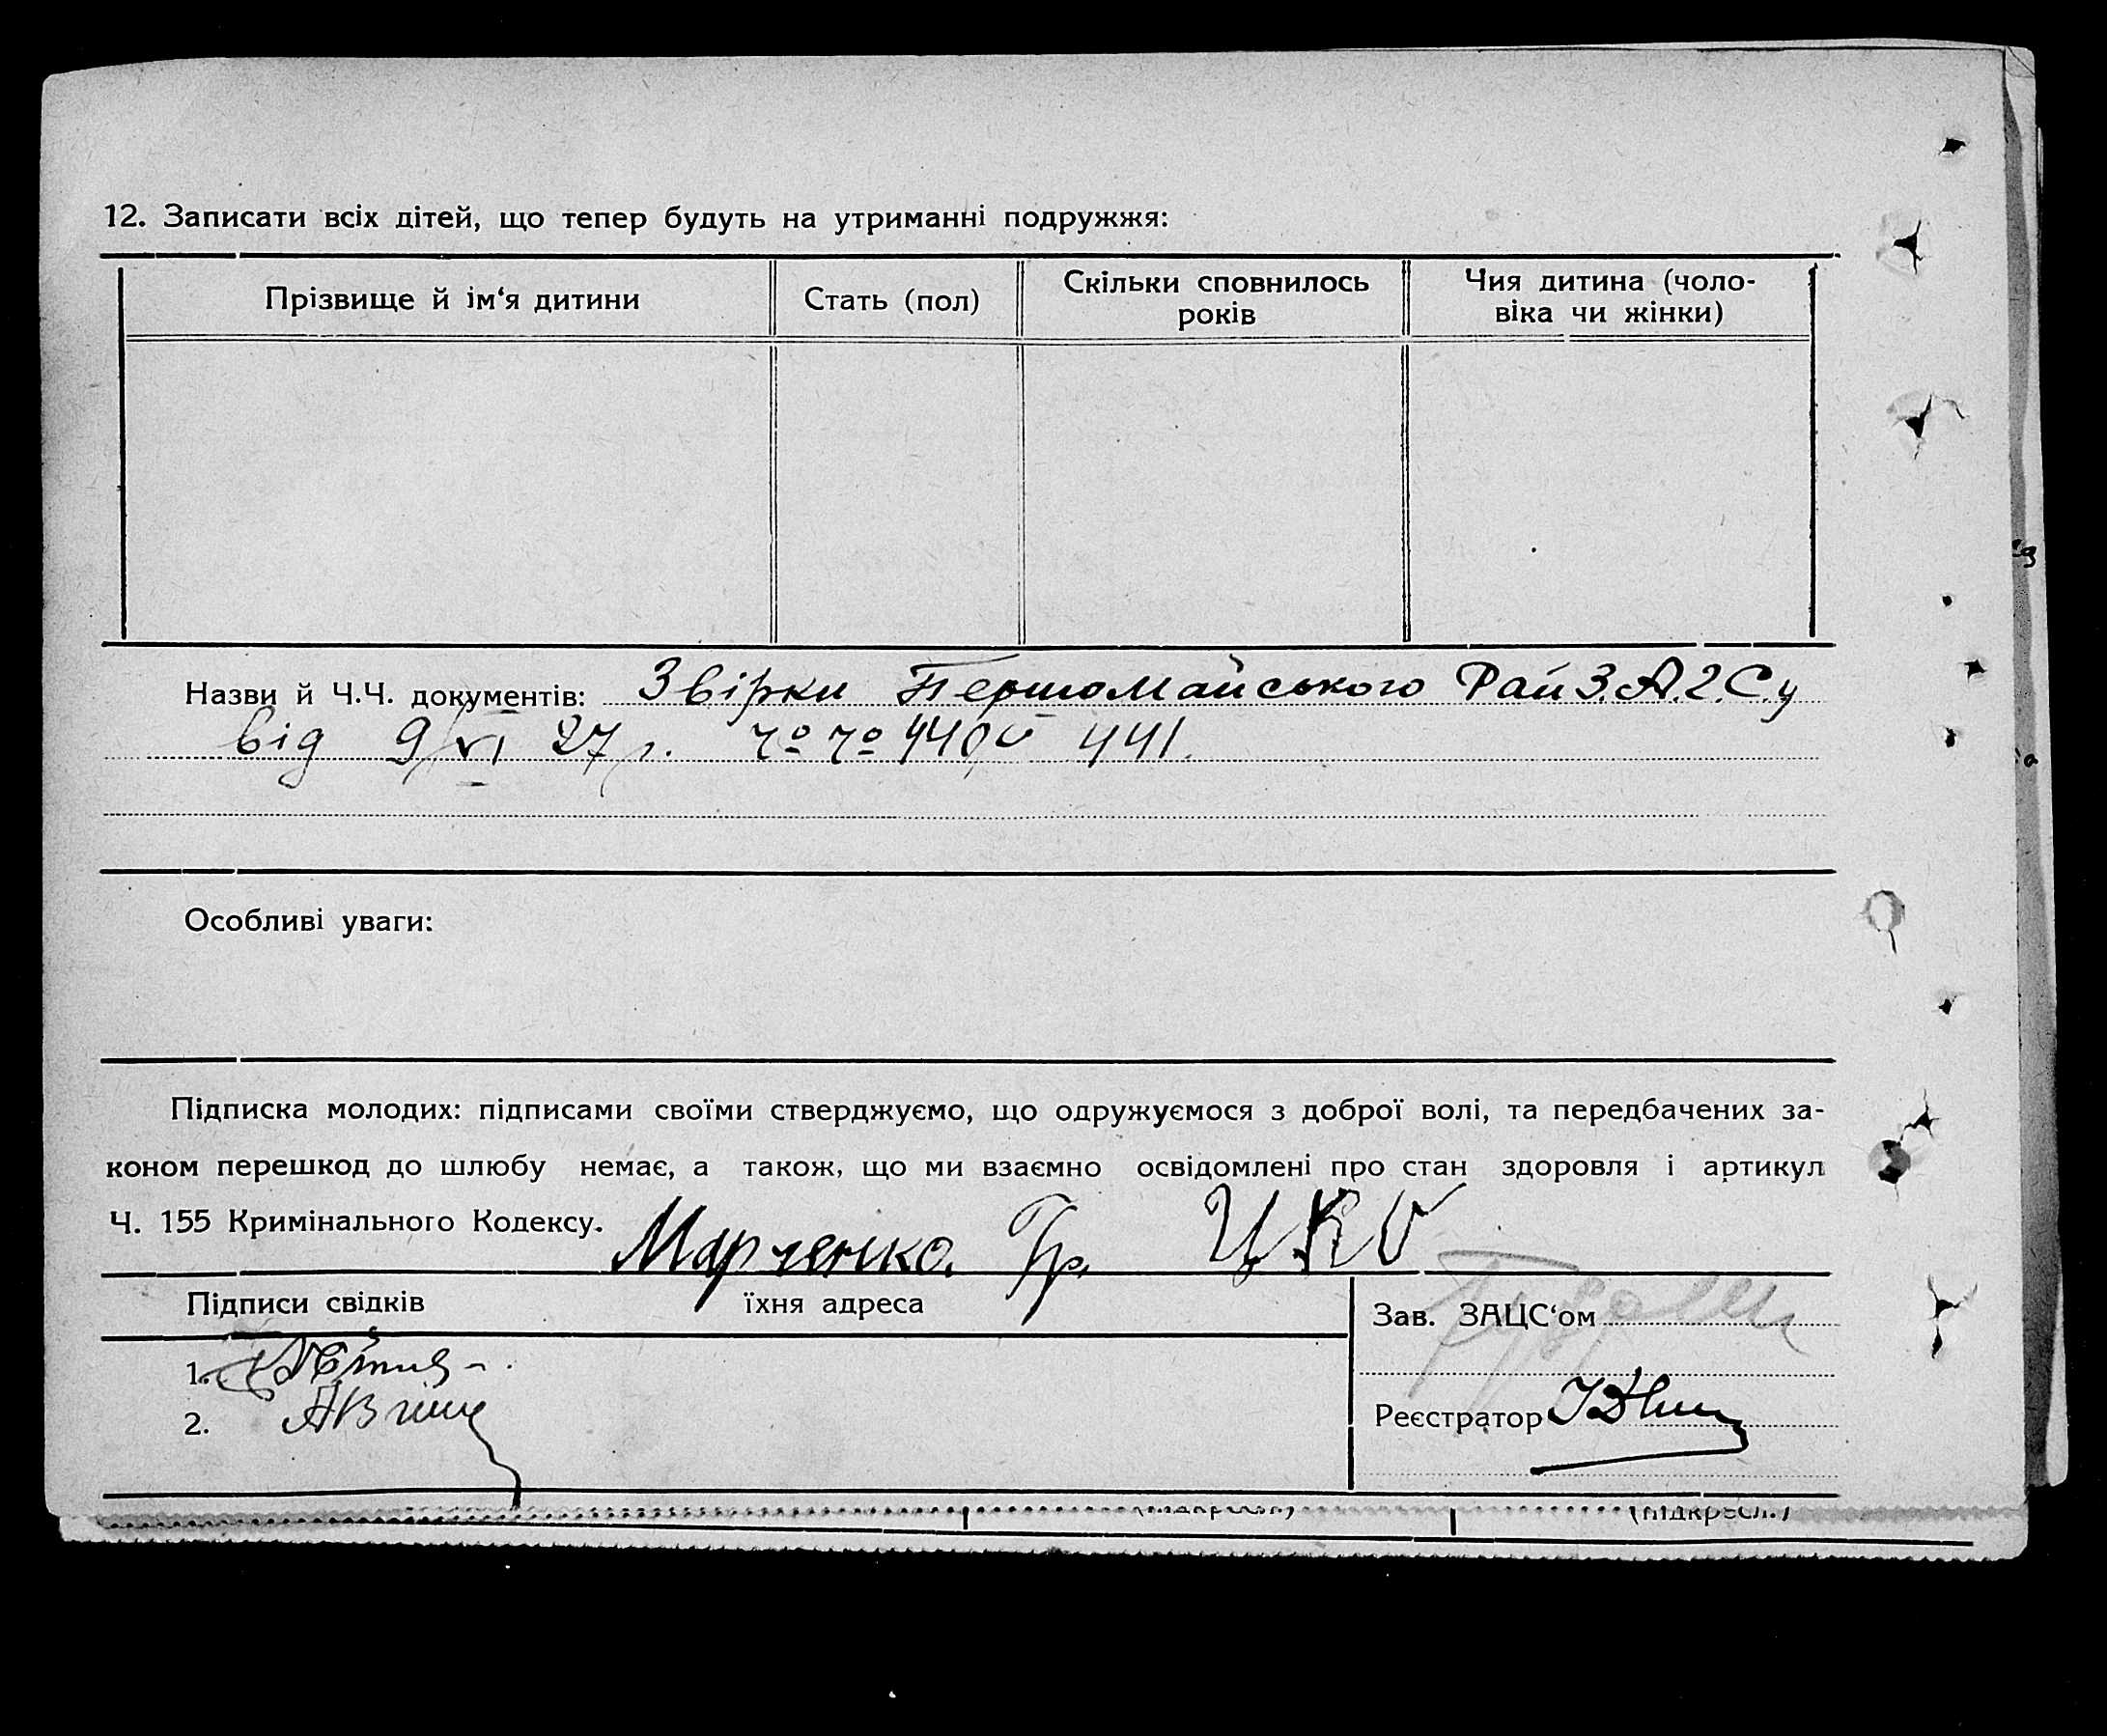 12. Записати всіх дітей, що тепер будуть на утриманні подружжя:
Прізвище й ім‘я дитини
Стать (пол)
Скільки сповнилось
років
Чия дитина (чоло-
віка чи жінки)
Назви й Ч.Ч. документів: Звірки ПершоМайського Рай З.А.Г.Су
від 9/VI 27 р. чо чо 440 й 441.
Особливі уваги:
Підписка молодих: підписами своїми стверджуємо, що одружуємося з доброї волі, та передбачених за-
коном перешкод до шлюбу немає, а також, що ми взаємно освідомлені про стан здоровля і артикул
Ч. 155 Кримінального Кодексу. Марченко. Гр.
Підписи свідків
їхня адреса
Зав. ЗАЦС‘ом
1.
2.
Реєстратор
(підкресл.)
(підкресл.)